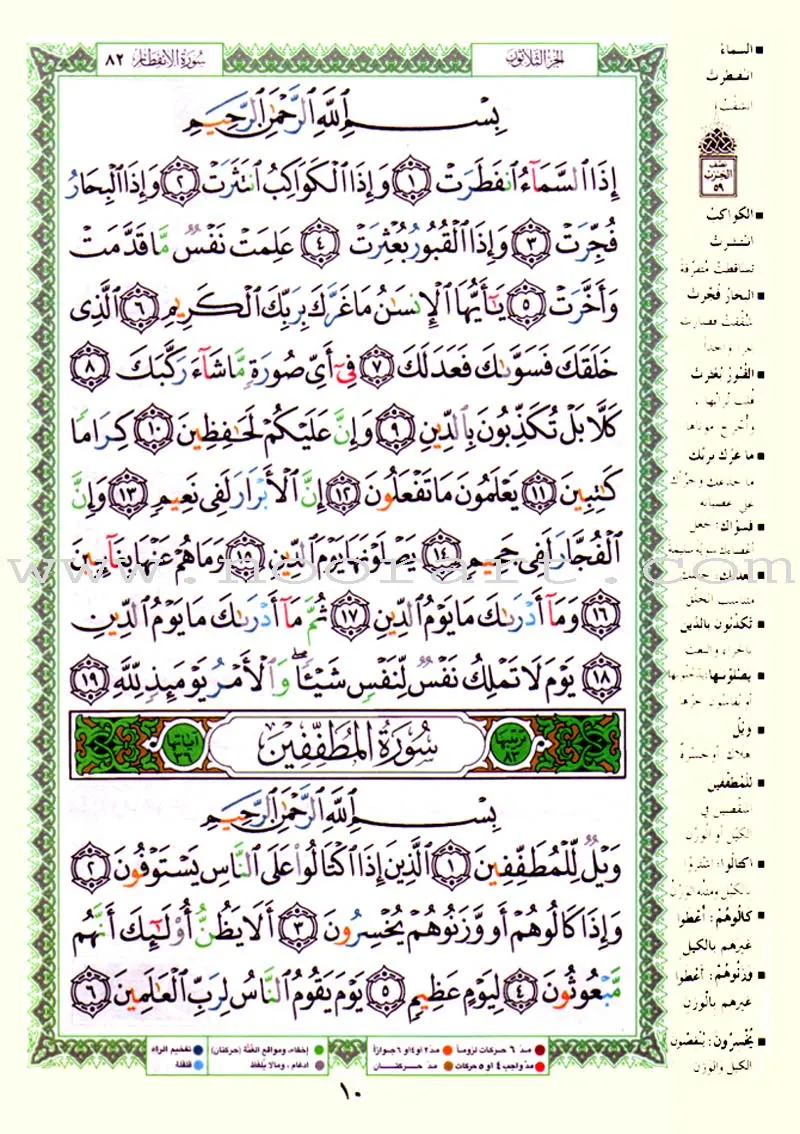 سُورَةُ الانفِطَار ٨٢
الجُزءُ الثَّلَاثُونَ
بِسْمِ ٱللَّهِ ٱلرَّحْمَٰنِ ٱلرَّحِيمِ
إِذَا ٱلسَّمَآءُ ٱنفَطَرَتْ ١ وَإِذَا ٱلْكَوَاكِبُ ٱنتَثَرَتْ ٢ وَإِذَا ٱلْبِحَارُ
فُجِّرَتْ ٣ وَإِذَا ٱلْقُبُورُ بُعْثِرَتْ ٤ عَلِمَتْ نَفْسٌ مَّا قَدَّمَتْ
وَأَخَّرَتْ ٥ يَٰٓأَيُّهَا ٱلْإِنسَٰنُ مَا غَرَّكَ بِرَبِّكَ ٱلْكَرِيمِ ٦ ٱلَّذِى
خَلَقَكَ فَسَوَّىٰكَ فَعَدَلَكَ ٧ فِىٓ أَىِّ صُورَةٍ مَّا شَآءَ رَكَّبَكَ ٨
كَلَّا بَلْ تُكَذِّبُونَ بِٱلدِّينِ ٩ وَإِنَّ عَلَيْكُمْ لَحَٰفِظِينَ ١٠ كِرَامًا
كَٰتِبِينَ ١١ يَعْلَمُونَ مَا تَفْعَلُونَ ١٢ إِنَّ ٱلْأَبْرَارَ لَفِى نَعِيمٍ ١٣ وَإِنَّ
ٱلْفُجَّارَ لَفِى جَحِيمٍ ١٤ يَصْلَوْنَهَا يَوْمَ ٱلدِّينِ ١٥ وَمَا هُمْ عَنْهَا بِغَآئِبِينَ
١٦ وَمَآ أَدْرَىٰكَ مَا يَوْمُ ٱلدِّينِ ١٧ ثُمَّ مَآ أَدْرَىٰكَ مَا يَوْمُ ٱلدِّينِ
١٨ يَوْمَ لَا تَمْلِكُ نَفْسٌ لِّنَفْسٍ شَيْـًٔا ۖ وَٱلْأَمْرُ يَوْمَئِذٍ لِّلَّهِ ١٩
ترتيبها ٨٣ سُورَةُ المُطَفِّفِينَ آياتها ٣٦
بِسْمِ ٱللَّهِ ٱلرَّحْمَٰنِ ٱلرَّحِيمِ
وَيْلٌ لِّلْمُطَفِّفِينَ ١ ٱلَّذِينَ إِذَا ٱكْتَالُوا۟ عَلَى ٱلنَّاسِ يَسْتَوْفُونَ ٢
وَإِذَا كَالُوهُمْ أَو وَّزَنُوهُمْ يُخْسِرُونَ ٣ أَلَا يَظُنُّ أُو۟لَٰٓئِكَ أَنَّهُم
مَّبْعُوثُونَ ٤ لِيَوْمٍ عَظِيمٍ ٥ يَوْمَ يَقُومُ ٱلنَّاسُ لِرَبِّ ٱلْعَٰلَمِينَ ٦
السماءُ
انفطرتْ
انشقّتْ
نصف
الحزب
٥٩
الكواكبُ
انتثرتْ
تساقطتْ مُتفرّقةً
البحارُ فُجّرتْ
شُقّقتْ فصارتْ
بحراً واحداً
القبورُ بُعثرتْ
قُلب تُرابُها ،
وأُخرج موتاها
ما غرّك بربّك
ما خدعك وجرّأك
على عصيانه
فسوّاك: جعل
أعضاءك سويّة سليمة
فعدلك: جعلك
متناسب الخلْق
تُكذّبون بالدّين
بالجزاء والبعث
يصلوْنها: يدخلونها
أو يُقاسُون حرّها
ويلٌ
هلاك أو حسرةٌ
للمُطفّفين
المُنقصين في
الكيْل أو الوزْن
اكتالوا: اشتروا
بالكيْل ومثله الوزْنُ
كالُوهُمْ: أعْطوا
غيرهم بالكيل
وزنُوهُمْ: أعْطوا
غيرهم بالوزن
يُخْسرُون: يُنقصُون
الكيل والوزن
www.noorart.com
مدّ ٦ حركات لزوماً مدّ ٢ أو ٤ أو ٦ جوازاً إخفاء، ومواقع الغُنَّة (حركتان) تفخيم الراء
مدّ واجب ٤ أو ٥ حركات مدّ حركتــان إدغام، ومالا يُلفظ قلقلة
١٠